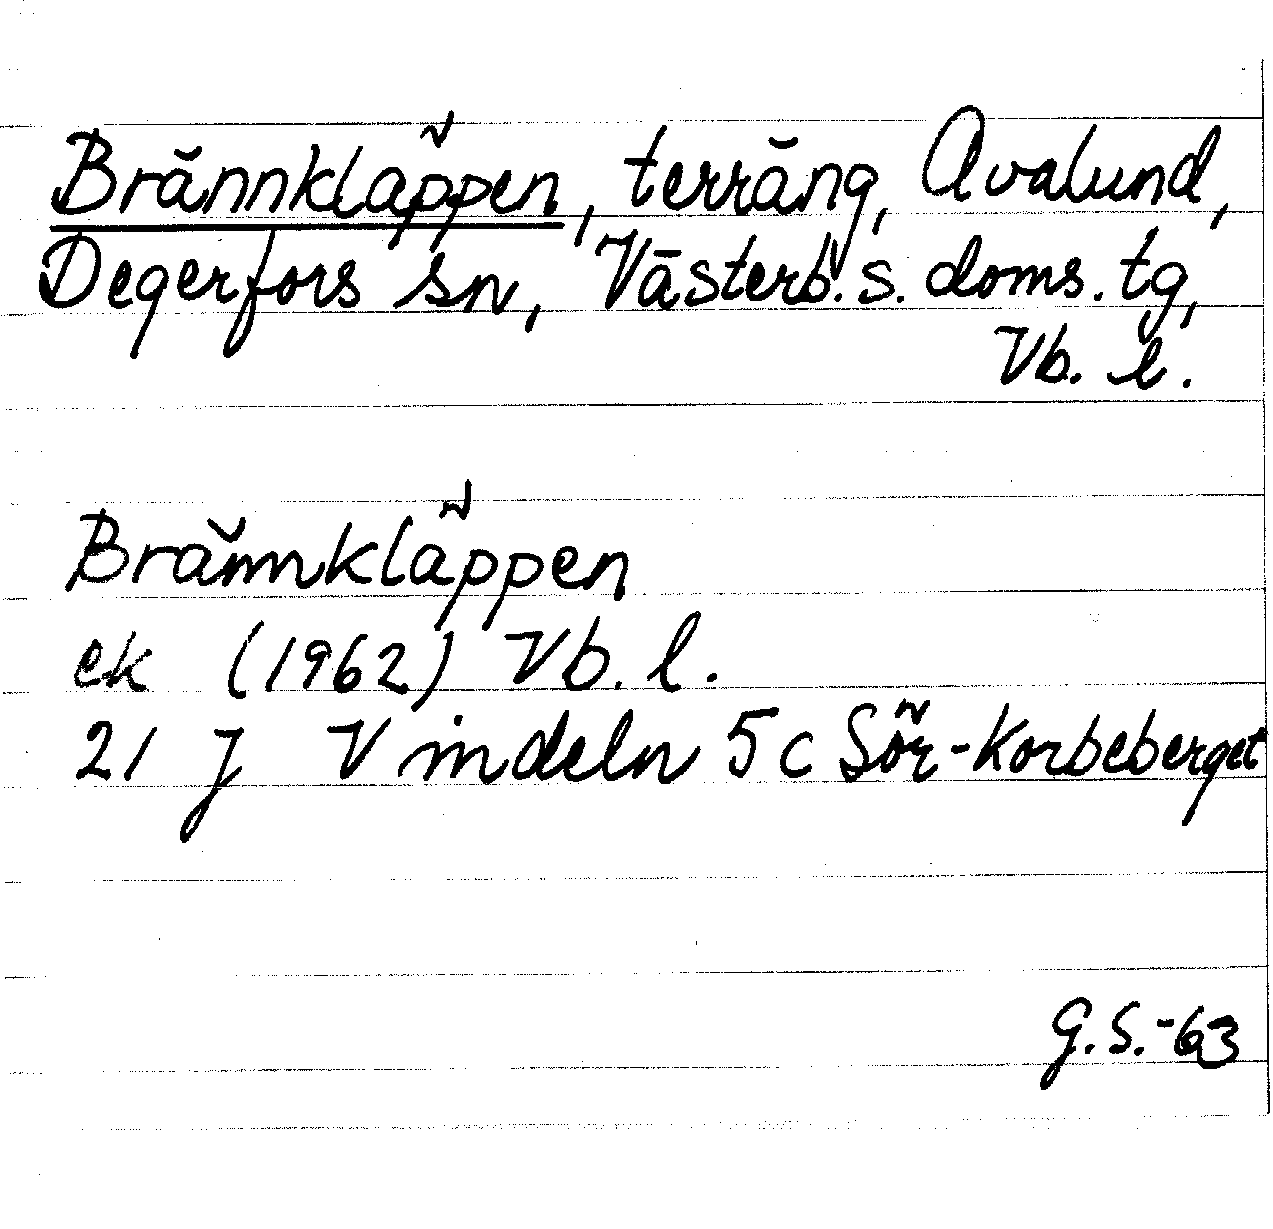 Brännkläppen, terräng, Avalund,
Degerfors sn, Västerb. s. doms. tg,
Vb. l.
Brännkläppen
ek (1962) Vb. l.
21 J Vindeln 5 c Sör-Korbeberget
G.S.-63